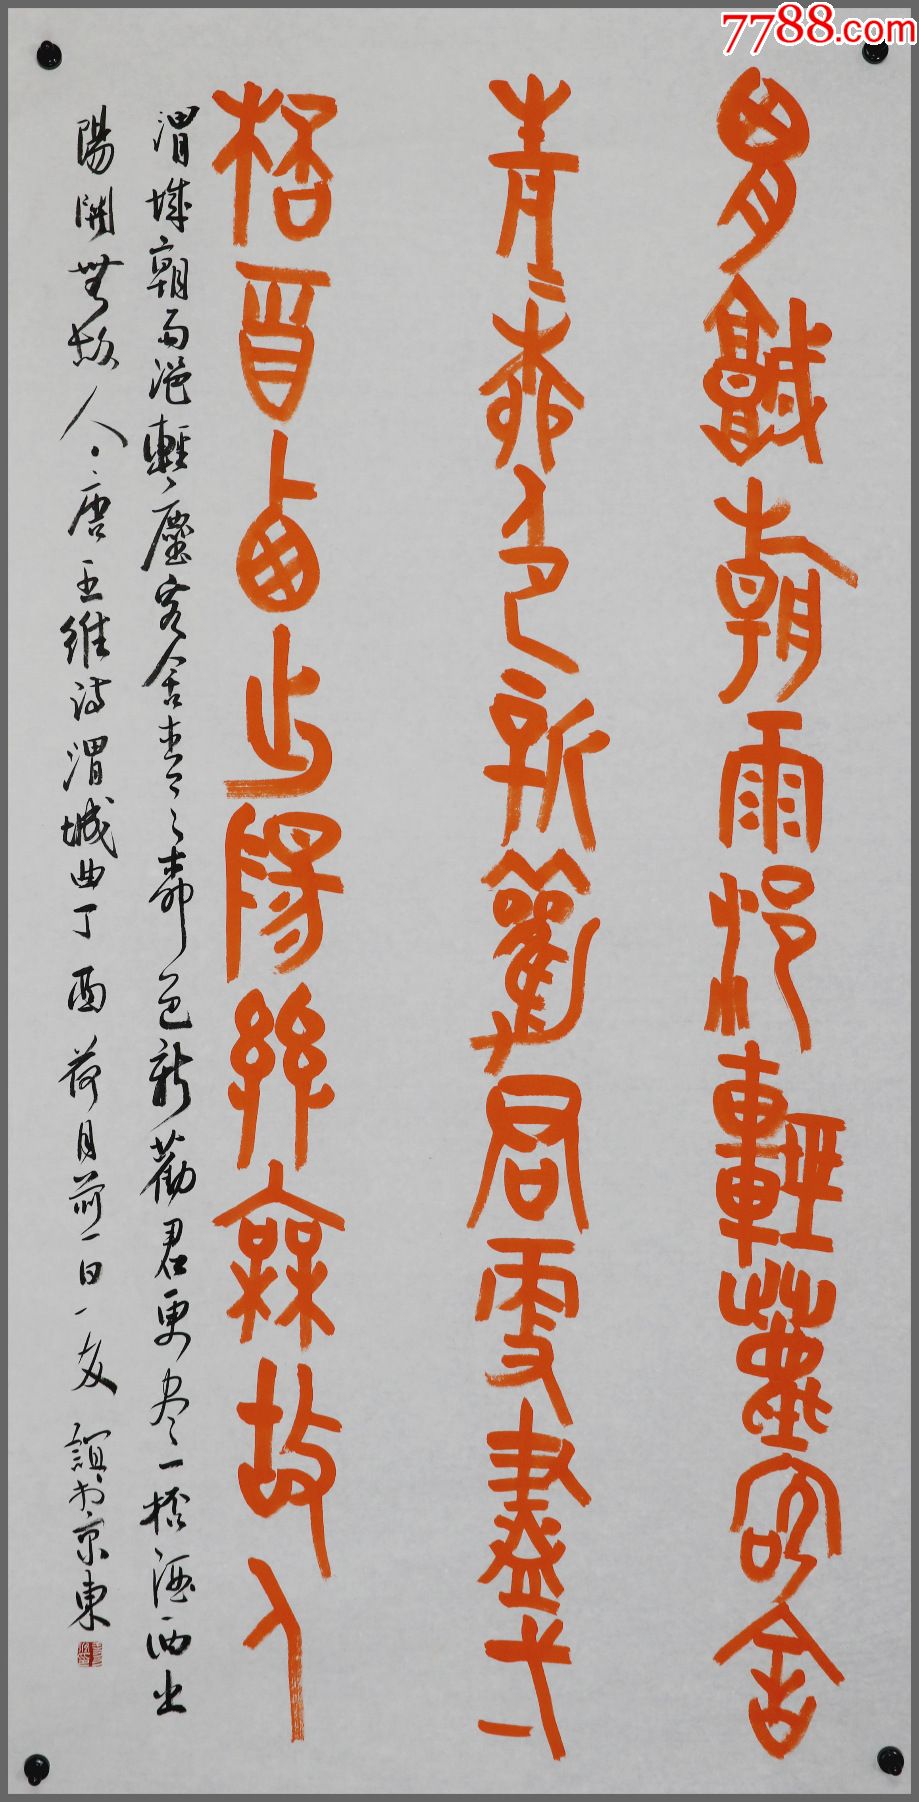 7788.com
胃城朝雨浥輕塵客舍
青=桺色新勸君更盡弌
桮酉西出陽關無故人
渭城朝雨浥輕塵客舍青々桺色新勸君更尽一桮酒西出
陽關無故人唐王維詩渭城曲丁酉荷月前一日一友誼於京東